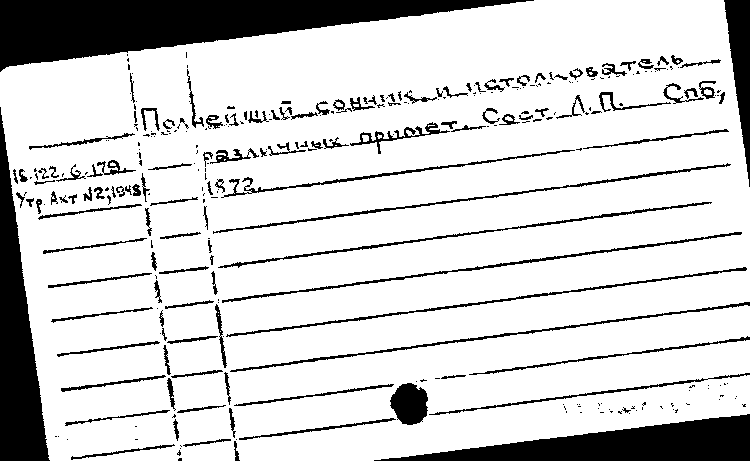 Полнейший сонник и истолкователь
различных примет. Сост. Л.П. Спб,
1872.
18.122.6.179.
Утр. Акт №2,1948г